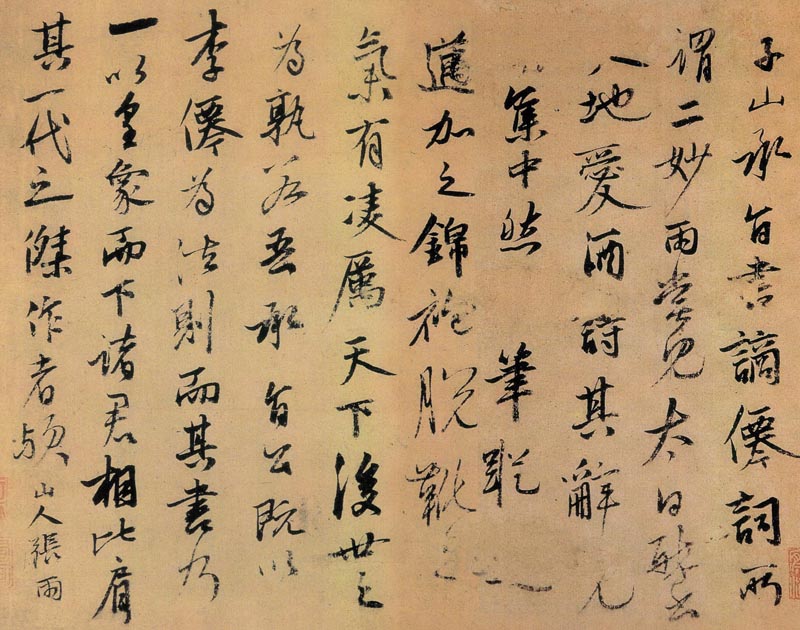 子山承旨書謫僊詞所
謂二妙雨嘗見太白醉書
地愛酒詩其辭見
集中然 筆蹤
邁加之錦袍脫靴
氣有凌厲天下後世之
為孰若吾承旨公既以
李僊為法則而其書乃
一以皇象而下諸君相比肩
其一代之傑作者歟山人張雨